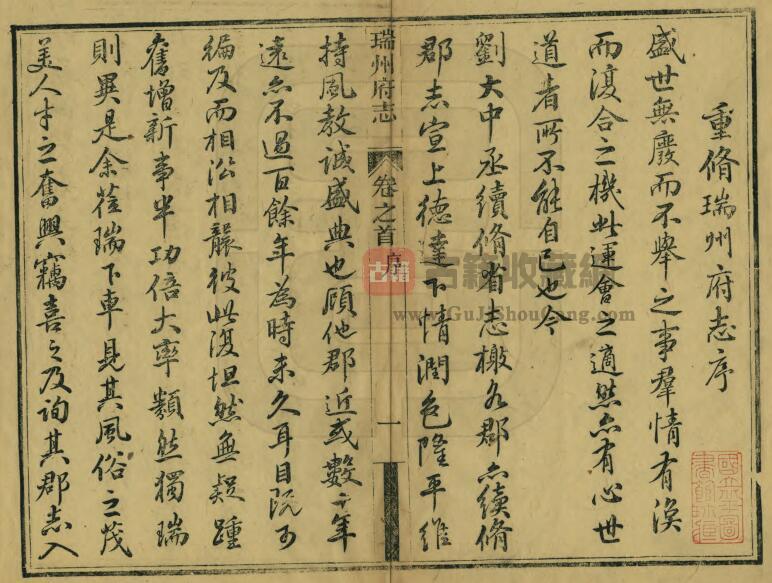 重脩瑞州府志序
盛世無廢而不舉之事羣情有渙
而復合之機此運會之適然亦有心世
道者所不能自已也今
劉大中丞續脩省志檄各郡亦續脩
郡志宣上德達下情潤色隆平維
瑞州府志 卷之首 序 一
持風教誠盛典也顧他郡近或數十年
遠亦不過百餘年為時未久耳目既可
徧及而相沿相襲彼此復坦然無疑踵
舊增新事半功倍大率類然獨瑞
則異是余蒞瑞下車見其風俗之茂
美人才之奮興竊喜之及詢其郡志入
古籍 古籍收藏網
www.GuJiShouCang.com